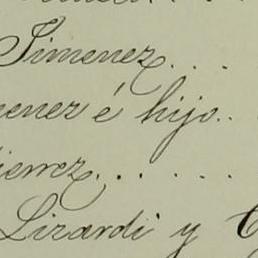 Jimenez...
menez é hijo..
ierrez......
Lizardi y